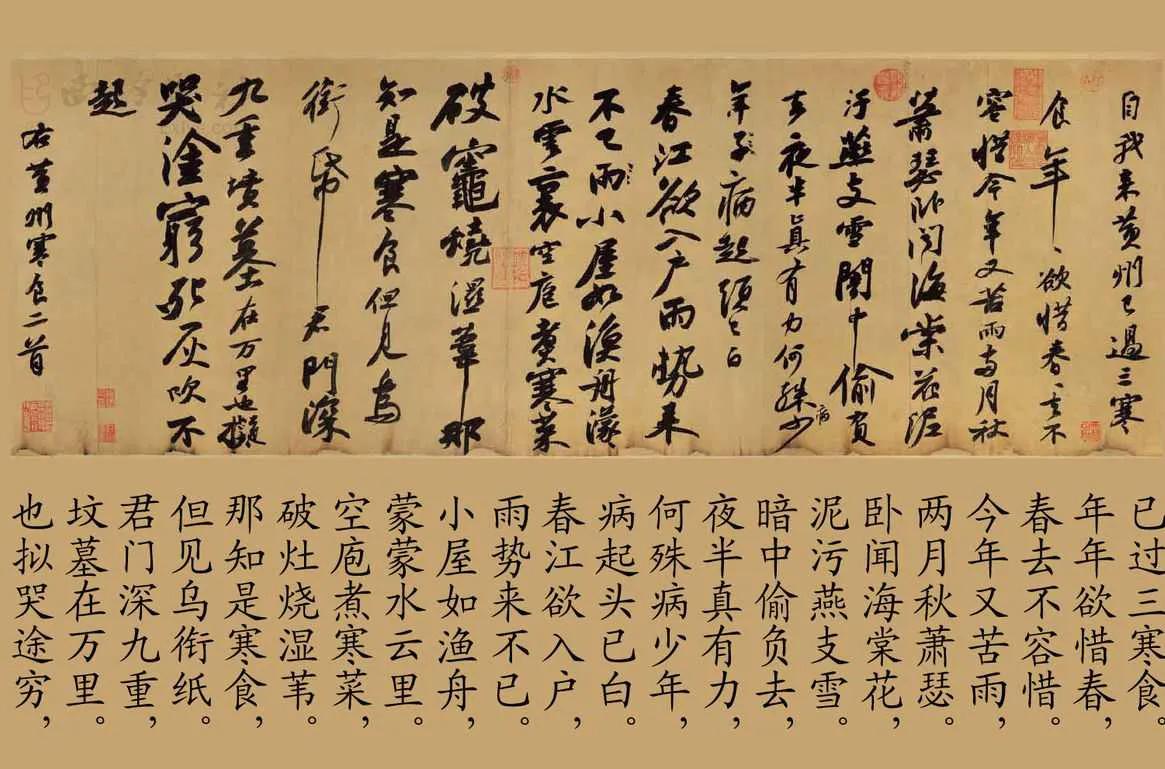 自我来黄州已過三寒
食年、欲惜春、去不
容惜今年又苦雨兩月秋
蕭瑟卧聞海棠花泥
汙燕支雪闇中偷負
去夜半真有力何殊少病
年子病起頭已白
春江欲入户雨勢来
不已雨小屋如漁舟濛
水雲裏空庖煮寒菜
破竈燒濕葦那
知是寒食但見烏
銜帋君門深
九重墳墓在万里也擬
哭塗窮死灰吹不
起
右黄州寒食二首
已过三寒食。
年年欲惜春，
春去不容惜。
今年又苦雨，
两月秋萧瑟。
卧闻海棠花，
泥污燕支雪。
暗中偷负去，
夜半真有力。
何殊病少年，
病起头已白。
春江欲入户，
雨势来不已。
小屋如渔舟，
蒙蒙水云里。
空庖煮寒菜，
破灶烧湿苇。
那知是寒食，
但见乌衔纸。
君门深九重，
坟墓在万里。
也拟哭途穷，